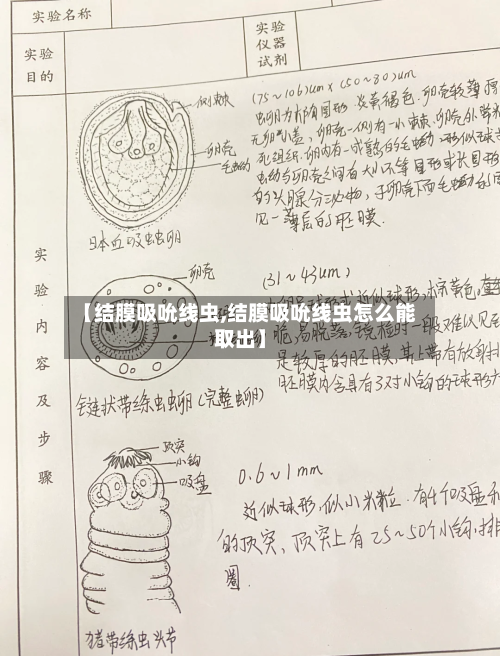 实验名称
实验
目的
实验
仪器
试剂
侧棘
卵壳
毛蚴
日本血吸虫卵
(75~106)um x (50~80)um
虫卵为椭圆形 淡黄褐色,卵壳较薄
无卵盖,卵壳一侧有一小棘,卵壳外
组织,卵内有一成熟的毛蚴
虫蚴与卵壳之间有大小不等圆形或长圆形
的头腺分泌物,于卵壳下面毛蚴
见一薄层的胚膜.
实
验
内
容
及
步
骤
卵壳
(31~43um)
近似球形,棕黄色,
脆,易脱落,镜检时一般难以见到
是较厚的胚膜,其上带有放射状
胚膜内含具有3对小钩的球形六
链状带绦虫虫卵(完整虫卵)
【结膜吸吮线虫,结膜吸吮线虫怎么能
取出】
顶突
小钩
吸盘
0.6~1mm
近似球形,似小米粒.有4个吸盘和
的顶突,顶突上有25~50个小钩,排
圈.
猪带绦虫头节